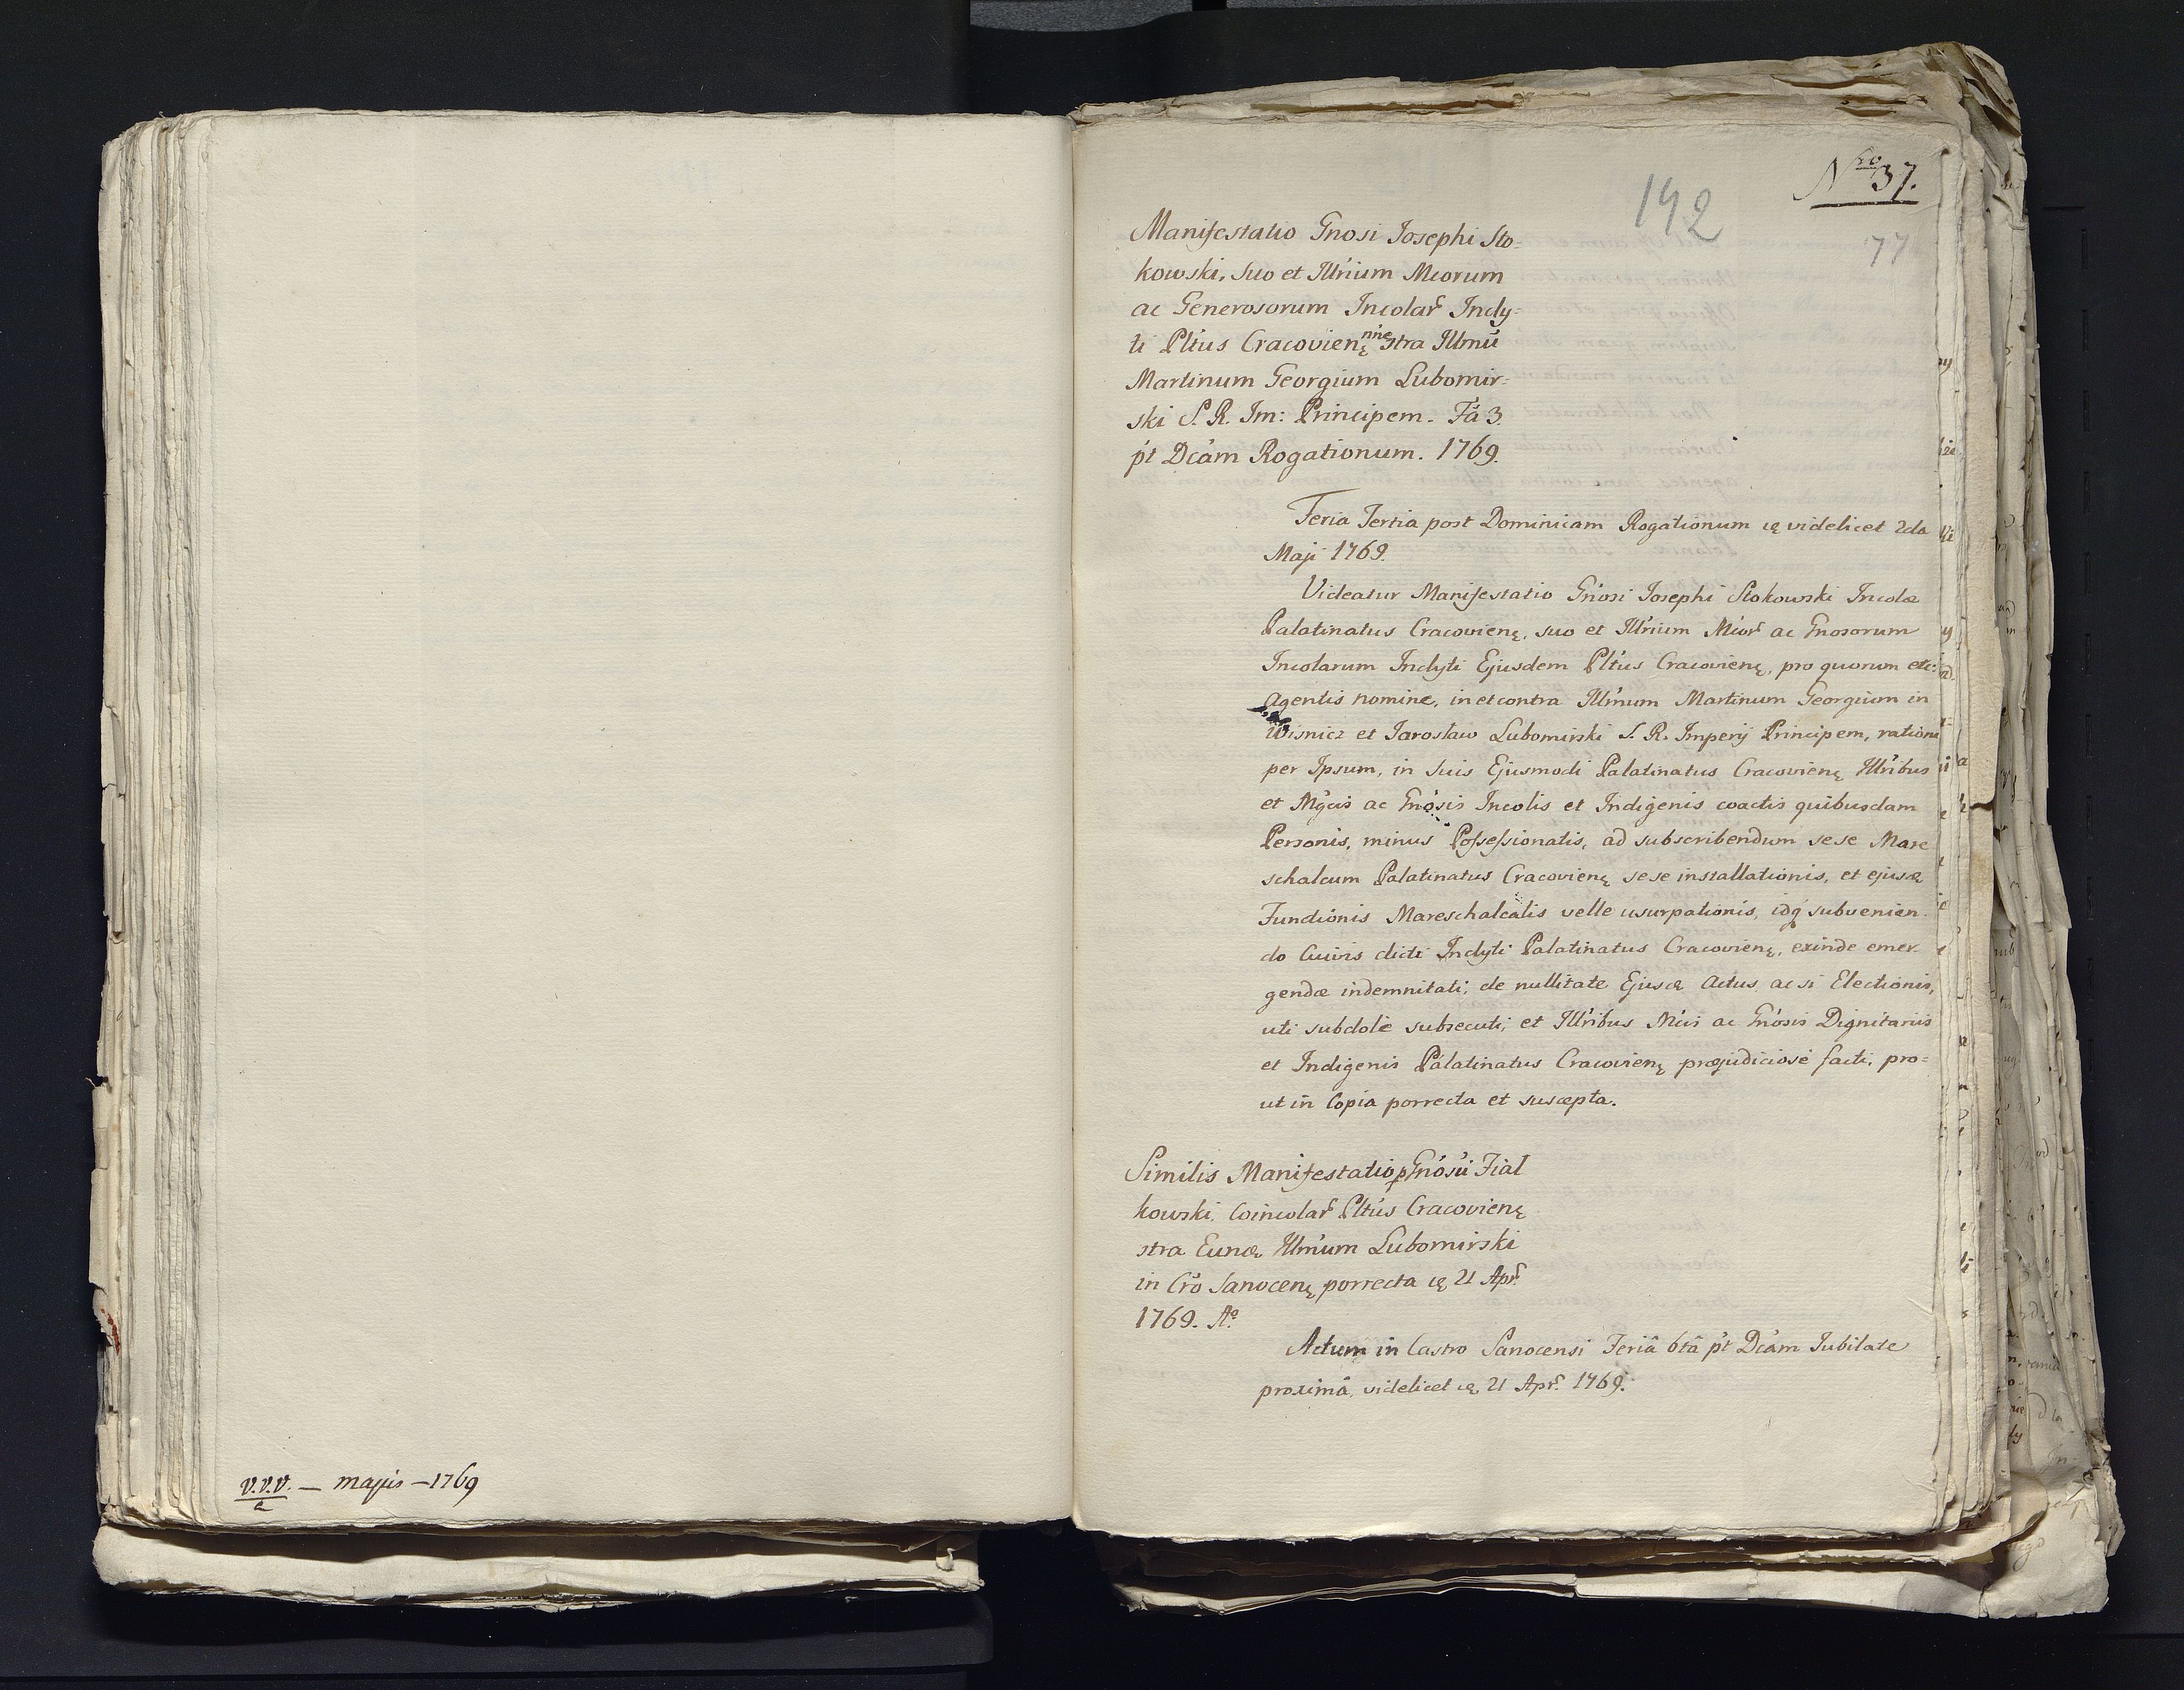 v.v.v. — majis — 1769
a
Nro 37.
192
77
Manifestatio Gnosi Josephi Sto=
kowski, suo et Illrium Mcorum
ac Generosorum Incolar Incly=
ti Pltus Cracovienę nne stra Illmū
Martinum Georgium Lubomir=
ski S. R. Im: Principem. Fâ 3.
pt Dcam Rogationum. 1769.
Feria Tertia post Dominicam Rogationum ię videlicet 2da
Maji 1769.
Videatur Manifestatio Gnosi Josephi Stokowski Incolæ
Palatinatus Cracovienę, suo et Illrium Mcor ac Gnosorum
Incolarum Inclyti Ejusdem Pltus Cracovienę, pro quorum etc:
Agentis nomine, in et contra Illmum Martinum Georgium in
Wisnicz et Jaroslaw Lubomirski S. R. Imperij Principem, ratione
per Ipsum, in suis Ejusmodi Palatinatus Cracovienę Illribus
et Mgcis ac Gnosis Incolis et Indigenis coactis quibusdam
Personis, minus Possessionatis, ad subscribendum sese Mare
schalcum Palatinatus Cracovienę sese installationis, et ejusę
Functionis Mareschalcalis velle usurpationis, idq subvenien
do Cuivis dicti Inclyti Palatinatus Cracovienę, exinde emer
gendæ indemnitati; de nullitate Ejusę Actus, ac si Electionis,
uti subdolè subsecuti, et Illribus Mcis ac Gnosis Dignitariis
et Indigenis Palatinatus Cracovienę præjudiciosè facti, pro=
ut in Copia porrecta et suscepta.
Similis Manifestatio p Gnosū Fial
kowski, Coincolar Pltus Cracovienę
stra Eunę Illmum Lubomirski
in Cro Sanocenę porrecta ię 21 Apr
1769. Ao
Actum in Castro Sanocensi Feriâ 6tâ pt Dcam Jubilate
proximâ, videlicet ię 21 Apr. 1769.